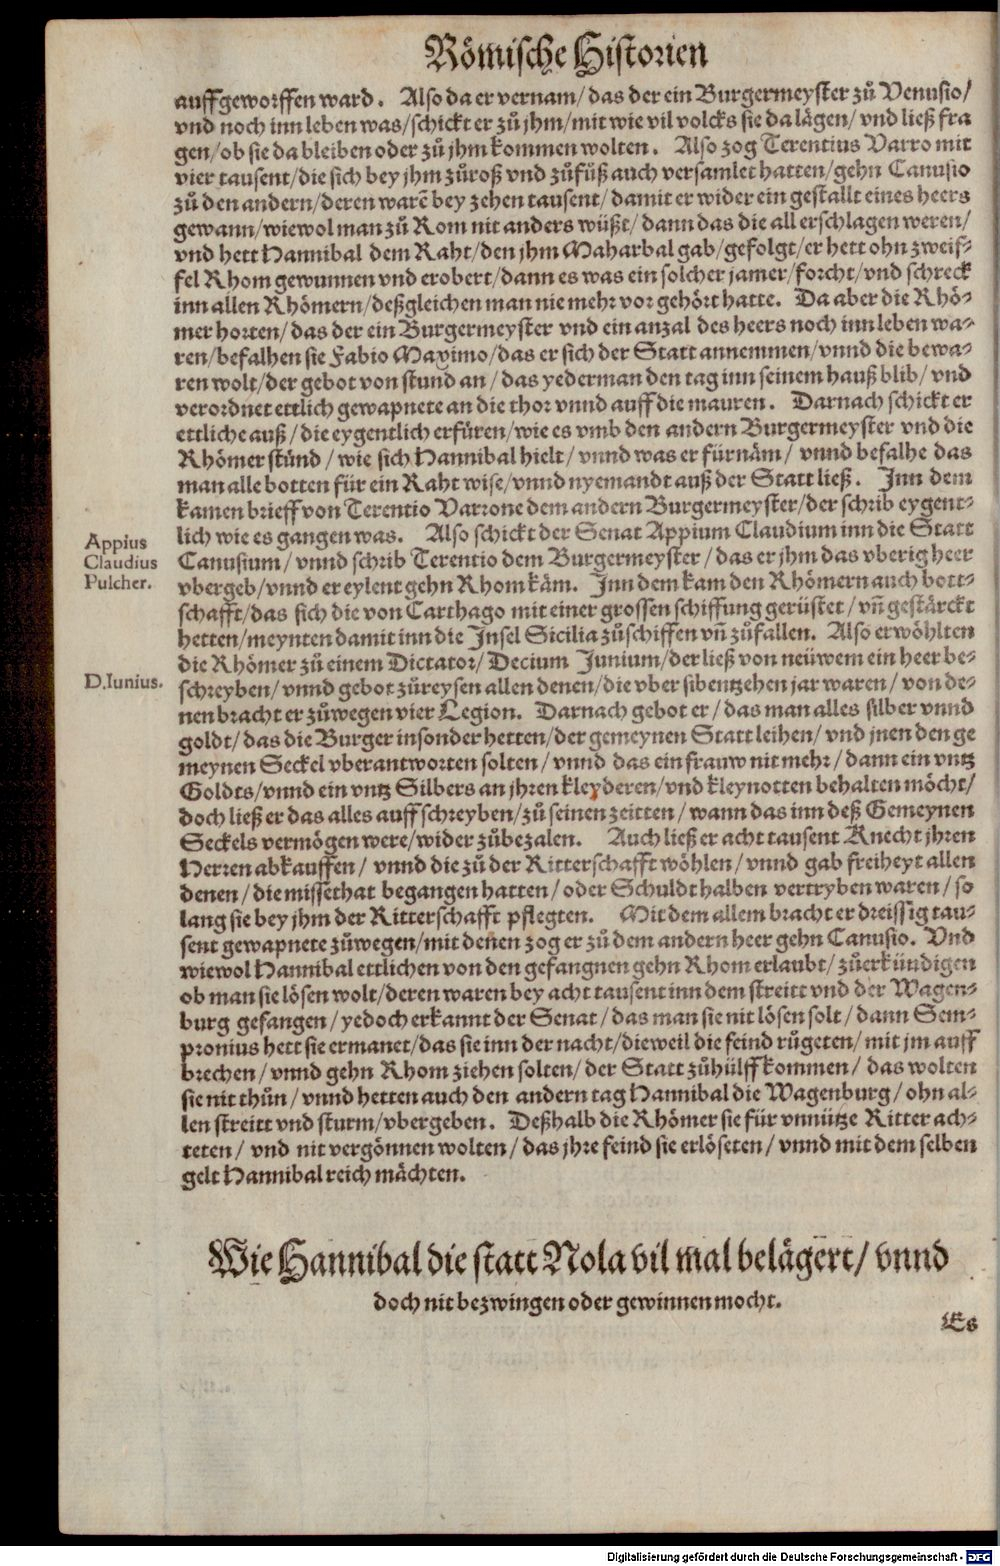 Römische Historien
auffgeworffen ward. Also da er vernam/ das der ein Burgermeyster zů Venusio/
vnd noch inn leben was/ schickt er zů jhm/ mit wie vil volcks sie da lägen/ vnd ließ fra
gen/ ob sie da bleiben oder zů jhm kommen wolten. Also zog Terentius Varro mit
vier tausent/ die sich bey jhm zůroß vnd zůfůß auch versamlet hatten/ gehn Canusio
zů den andern/ deren warẽ bey zehen tausent/ damit er wider ein gestallt eines heers
gewann/ wiewol man zů Rom nit anders wüßt/ dann das die all erschlagen weren/
vnd hett Hannibal dem Raht/ den jhm Maharbal gab/ gefolgt/ er hett ohn zweif⸗
fel Rhom gewunnen vnd erobert/ dann es was ein solcher jamer/ forcht/ vnd schreck
inn allen Rhömern/ deßgleichen man nie mehr vor gehört hatte. Da aber die Rhö⸗
mer horten/ das der ein Burgermeyster vnd ein anzal des heers noch inn leben wa⸗
ren/ befalhen sie Fabio Maximo/ das er sich der Statt annemmen/ vnnd die bewa⸗
ren wolt/ der gebot von stund an/ das yederman den tag inn seinem hauß blib/ vnd
verordnet ettlich gewapnete an die thor vnnd auff die mauren. Darnach schickt er
ettliche auß/ die eygentlich erfüren/ wie es vmb den andern Burgermeyster vnd die
Rhömer stůnd/ wie sich Hannibal hielt/ vnnd was er fürnäm/ vnnd befalhe das
man alle botten für ein Raht wise/ vnnd nyemandt auß der Statt ließ. Inn dem
kamen brieff von Terentio Varrone dem andern Burgermeyster/ der schrib eygent⸗
lich wie es gangen was. Also schickt der Senat Appium Claudium inn die Statt
Appius
Claudius
Pulcher.
Canusium/ vnnd schrib Terentio dem Burgermeyster/ das er jhm das vberig heer
vbergeb/ vnnd er eylent gehn Rhom käm. Inn dem kam den Rhömern auch bott⸗
schafft/ das sich die von Carthago mit einer grossen schiffung gerüstet/ vñ gestärckt
hetten/ meynten damit inn die Insel Sicilia zůschiffen vñ zůfallen. Also erwöhlten
die Rhömer zů einem Dictator/ Decium Junium/ der ließ von neüwem ein heer be⸗
D. Iunius.
schreyben/ vnnd gebot zůreysen allen denen/ die vber sibentzehen jar waren/ von de⸗
nen bracht er zůwegen vier Legion. Darnach gebot er/ das man alles silber vnnd
goldt/ das die Burger insonder hetten/ der gemeynen Statt leihen/ vnd jnen den ge
meynen Seckel vberantworten solten/ vnnd das ein frauw nit mehr/ dann ein vntz
Goldts/ vnnd ein vntz Silbers an jhren kleyderen/ vnd kleynotten behalten möcht/
doch ließ er das alles auff schreyben/ zů seinen zeitten/ wann das inn deß Gemeynen
Seckels vermögen were/ wider zůbezalen. Auch ließ er acht tausent Knecht jhren
Herren abkauffen/ vnnd die zů der Ritterschafft wöhlen/ vnnd gab freiheyt allen
denen/ die missethat begangen hatten/ oder Schuldt halben vertryben waren/ so
lang sie bey jhm der Ritterschafft pflegten. Mit dem allem bracht er dreissig tau⸗
sent gewapnete zůwegen/ mit denen zog er zů dem andern heer gehn Canusio. Vnd
wiewol Hannibal ettlichen von den gefangnen gehn Rhom erlaubt/ zůerkündigen
ob man sie lösen wolt/ deren waren bey acht tausent inn dem streitt vnd der Wagen⸗
burg gefangen/ yedoch erkannt der Senat/ das man sie nit lösen solt/ dann Sem⸗
pronius hett sie ermanet/ das sie inn der nacht/ dieweil die feind růgeten/ mit jm auff
brechen/ vnnd gehn Rhom ziehen solten/ der Statt zůhülff kommen/ das wolten
sie nit thůn/ vnnd hetten auch den andern tag Hannibal die Wagenburg/ ohn al⸗
len streitt vnd sturm/ vbergeben. Deßhalb die Rhömer sie für vnnütze Ritter ach⸗
teten/ vnd nit vergönnen wolten/ das jhre feind sie erlöseten/ vnnd mit dem selben
gelt Hannibal reich mächten.
Wie Hannibal die statt Nola vil mal belägert/ vnnd
doch nit bezwingen oder gewinnen mocht.
Es
Digitalisierung gefördert durch die Deutsche Forschungsgemeinschaft - DFG